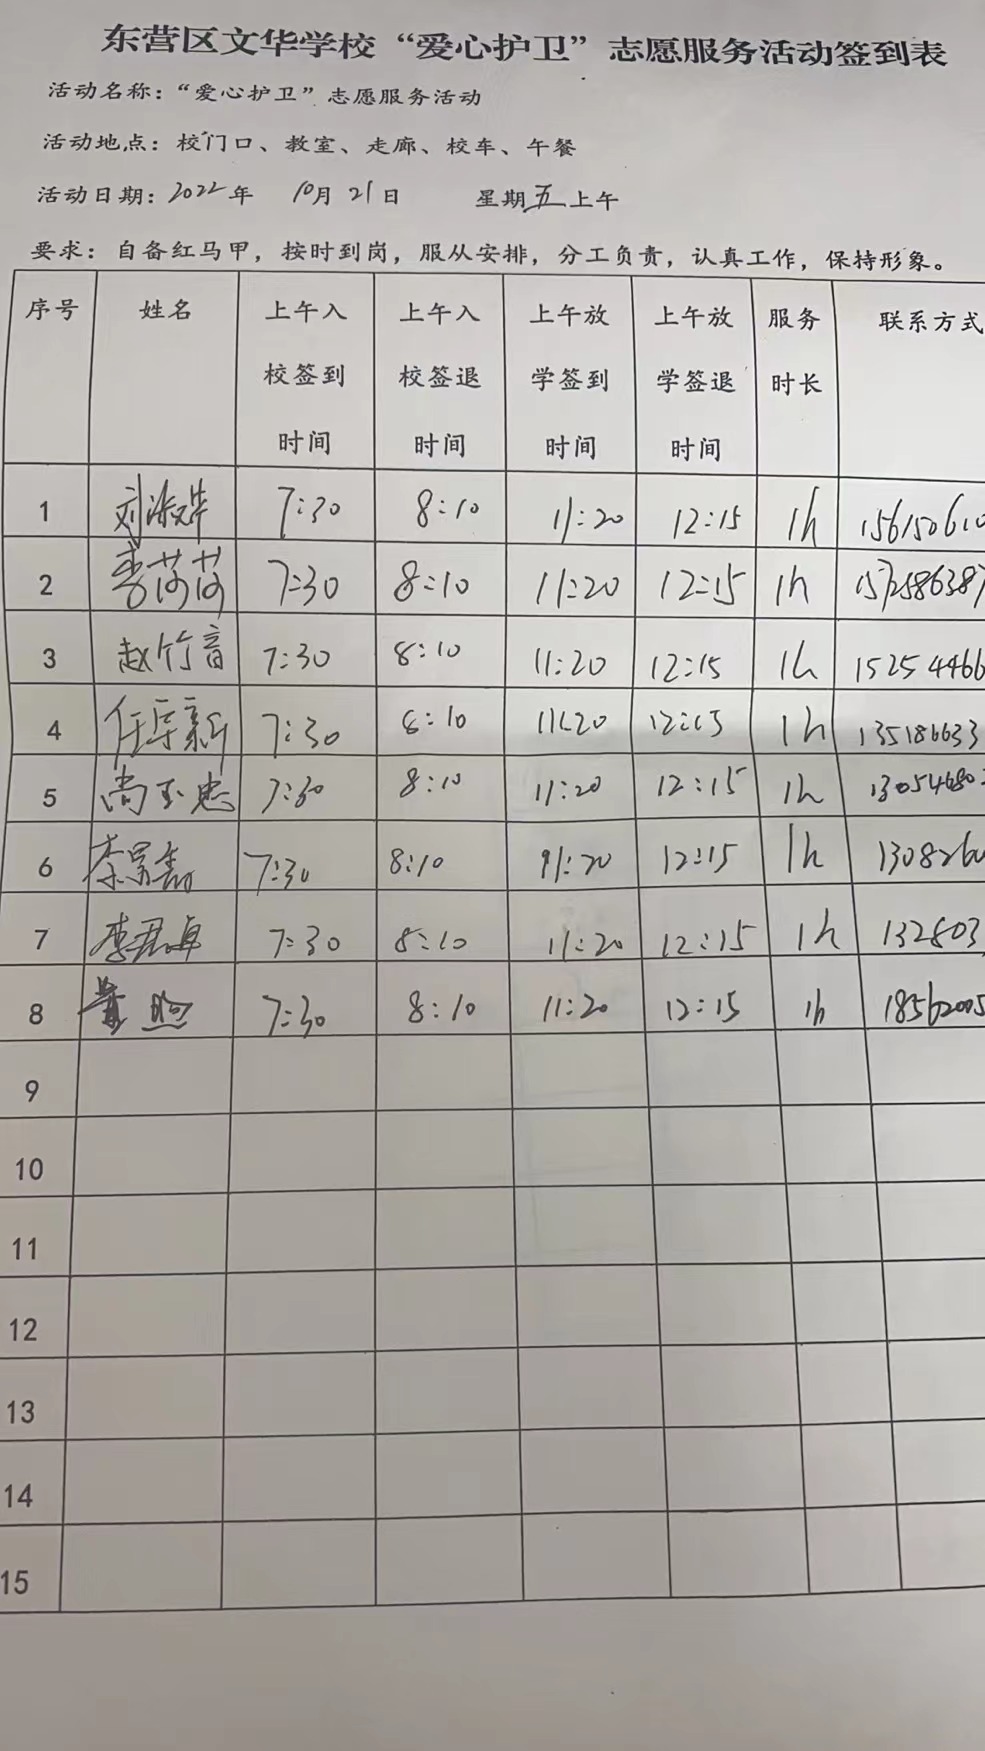 东营区文华学校“爱心护卫”志愿服务活动签到表
活动名称：“爱心护卫”志愿服务活动
活动地点：校门口、教室、走廊、校车、午餐
活动日期：2022年 10月21日 星期五上午
要求：自备红马甲，按时到岗，服从安排，分工负责，认真工作，保持形象。
序号 姓名 上午入校签到时间 上午入校签退时间 上午放学签到时间 上午放学签退时间 服务时长 联系方式
1 7:30 8:10 11:20 12:15 1h 156150610
2 李茵茵 7:30 8:10 11:20 12:15 1h 1572586387
3 赵竹音 7:30 8:10 11:20 12:15 1h 15254466
4 7:30 8:10 11:20 12:15 1h 135186633
5 尚玉忠 7:30 8:10 11:20 12:15 1h
6 7:30 8:10 11:20 12:15 1h 1308260
7 李君卓 7:30 8:10 11:20 12:15 1h 132803
8 7:30 8:10 11:20 12:15 1h 18562005
9
10
11
12
13
14
15